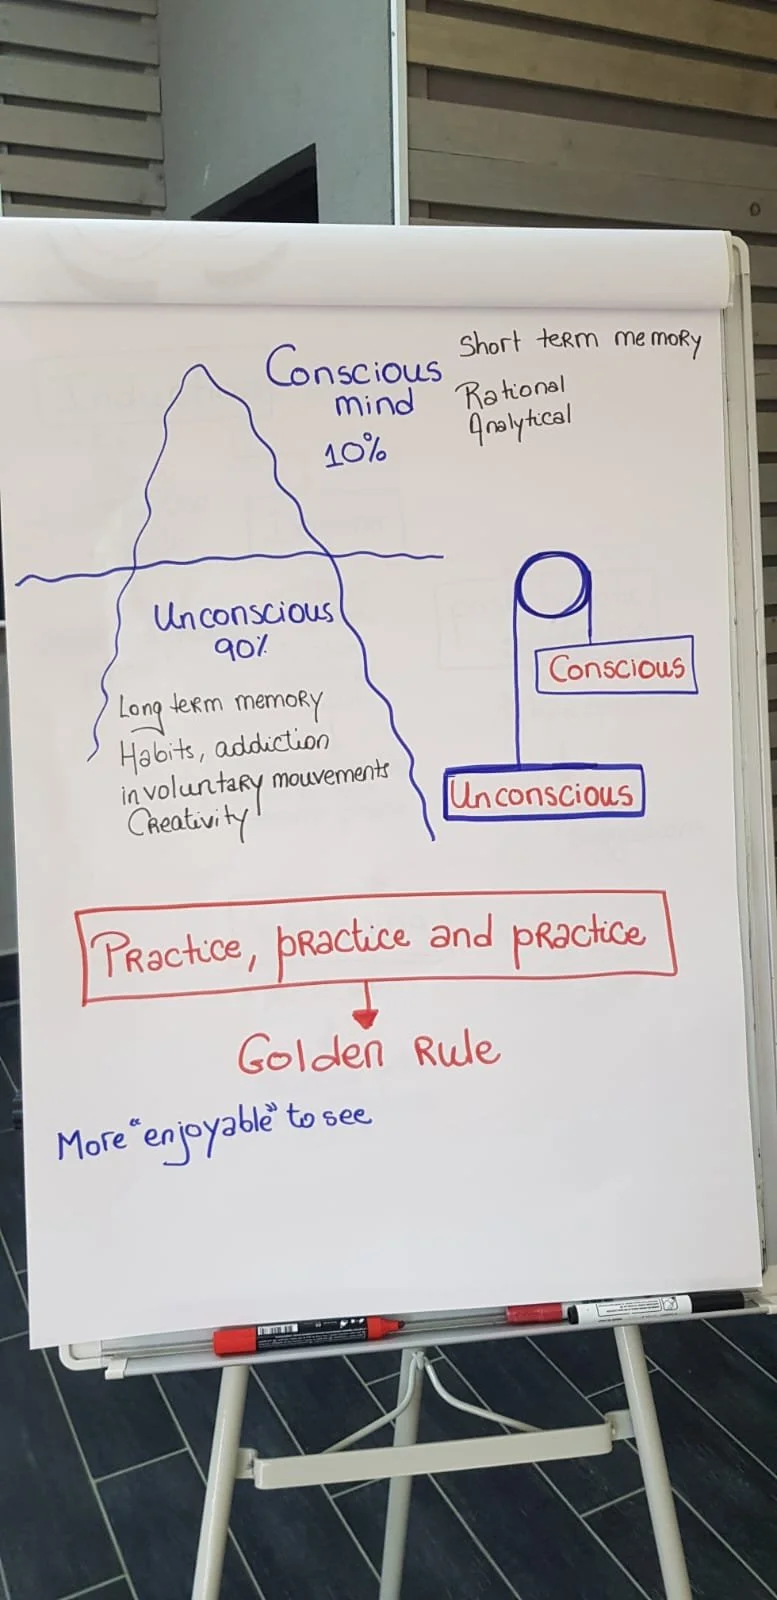 Conscious
mind
10%
Short term memory
Rational
Analytical
Unconscious
90%
Long term memory
Habits, addiction
involuntary mouvements
Creativity
Conscious
Unconscious
Practice, practice and practice
Golden Rule
More "enjoyable" to see